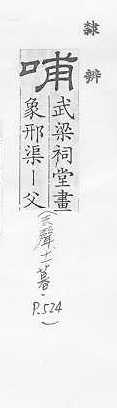 隸辨
哺
武梁祠堂畫
象邢渠丨父
(去聲十一暮.
P.524
)